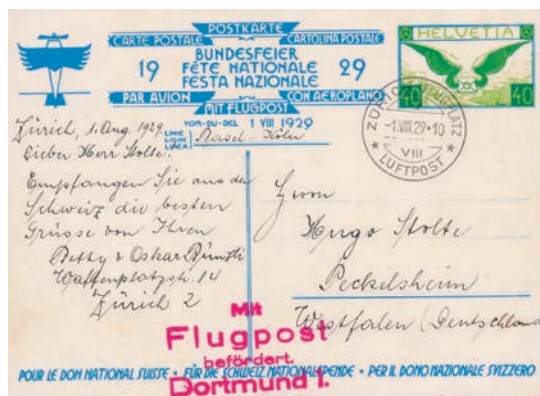 POSTKARTE
CARTE POSTALE CARTOLINA POSTALE
BUNDESFEIER
19 FÊTE NATIONALE 29
FESTA NAZIONALE
PAR AVION CON AEROPLANO
MIT FLUGPOST
VOM-DU-DEL 1 VIII 1929
LINIE
LIGNE
LINEA
Basel - Köln
HELVETIA
40 40
ZÜRICH FLUGPLATZ
-1.VIII.29-10
VIII
LUFTPOST
Zürich, 1. Aug. 1929
Lieber Herr Stolte.
Empfangen Sie aus der
Schweiz die besten
Grüsse von Ihren
Betty & Oskar Bünzli
Waffenplatzstr. 14
Zürich 2
Herrn
Hugo Stolte
Peckelsheim
Westfalen (Deutschland
Mit
Flugpost
befördert.
Dortmund 1.
POUR LE DON NATIONAL SUISSE • FÜR DIE SCHWEIZ. NATIONALSPENDE • PER IL DONO NAZIONALE SVIZZERO